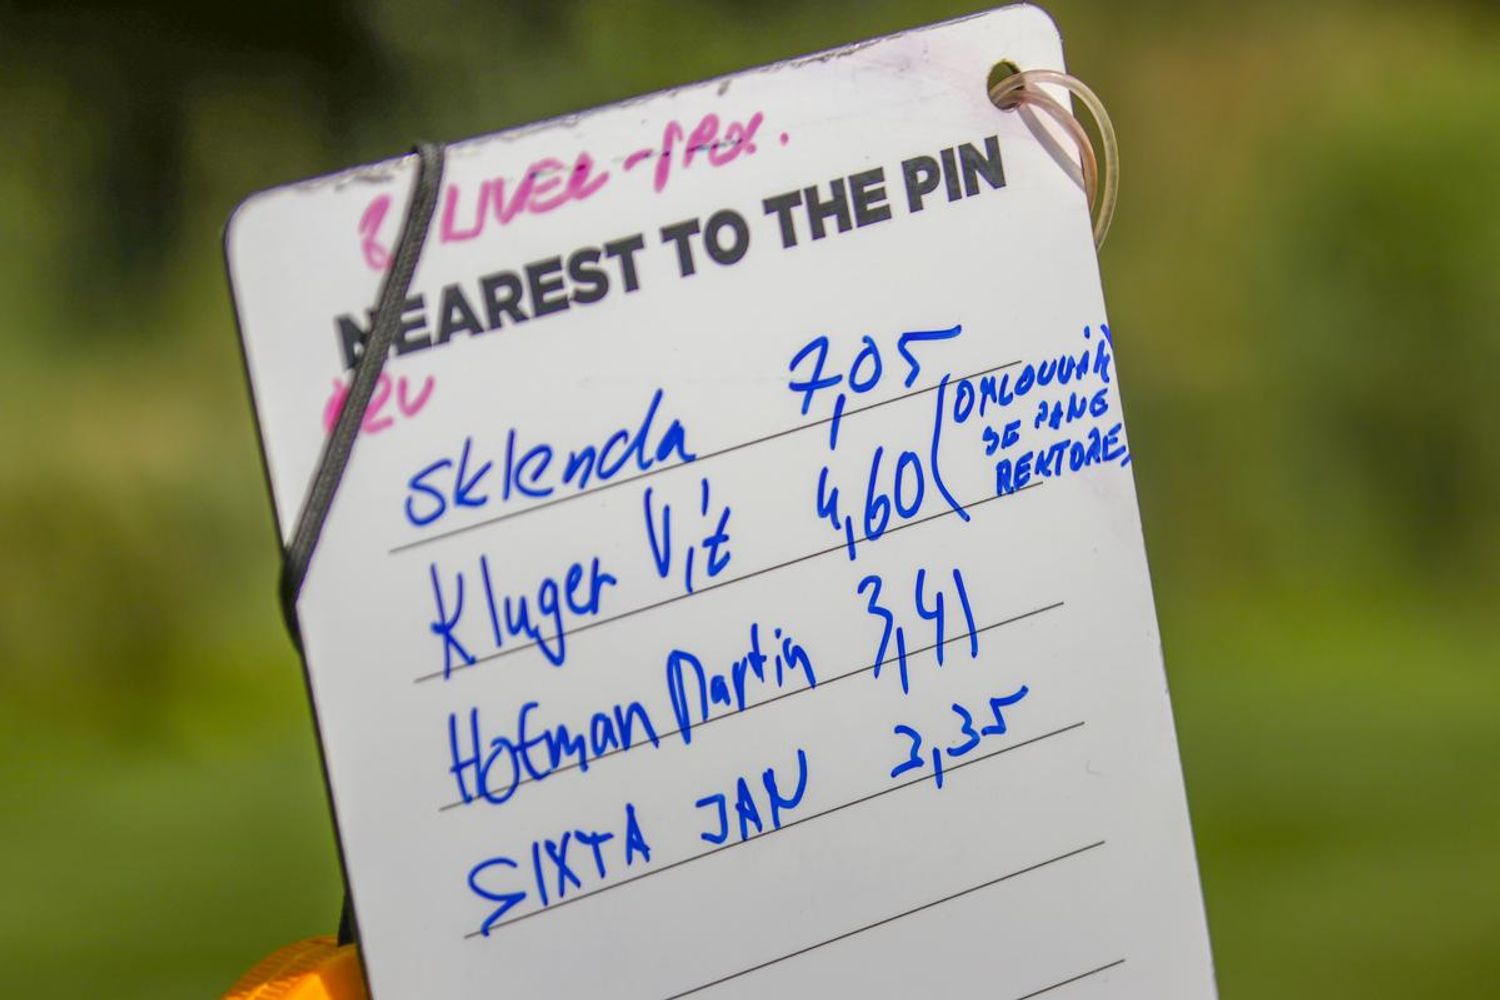 LIVER - PROX.
NEAREST TO THE PIN
Sklenda 7,05
Kluger Vít 4,60 (OMLOUVÁM
SE PANE
REKTORE,
Hofman Martin 3,41
SIXTA JAN 3,35